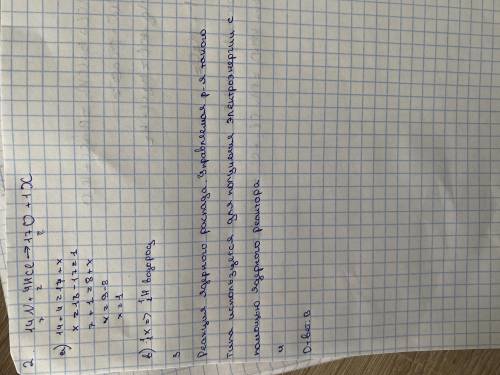 2. 14N + 4HCe → 17O + 1X
7 2 8
а) 14 + 4 = 17 + x
x = 18 - 17 = 1
7 + 1 = 8 + x
x = 9 - 8
x = 1
в) 1X => 1H водород
3
Реакция ядерного распада. Управляемая р-я такого
типа используется для получения электроэнергии с
помощью ядерного реактора
4
Ответ: В